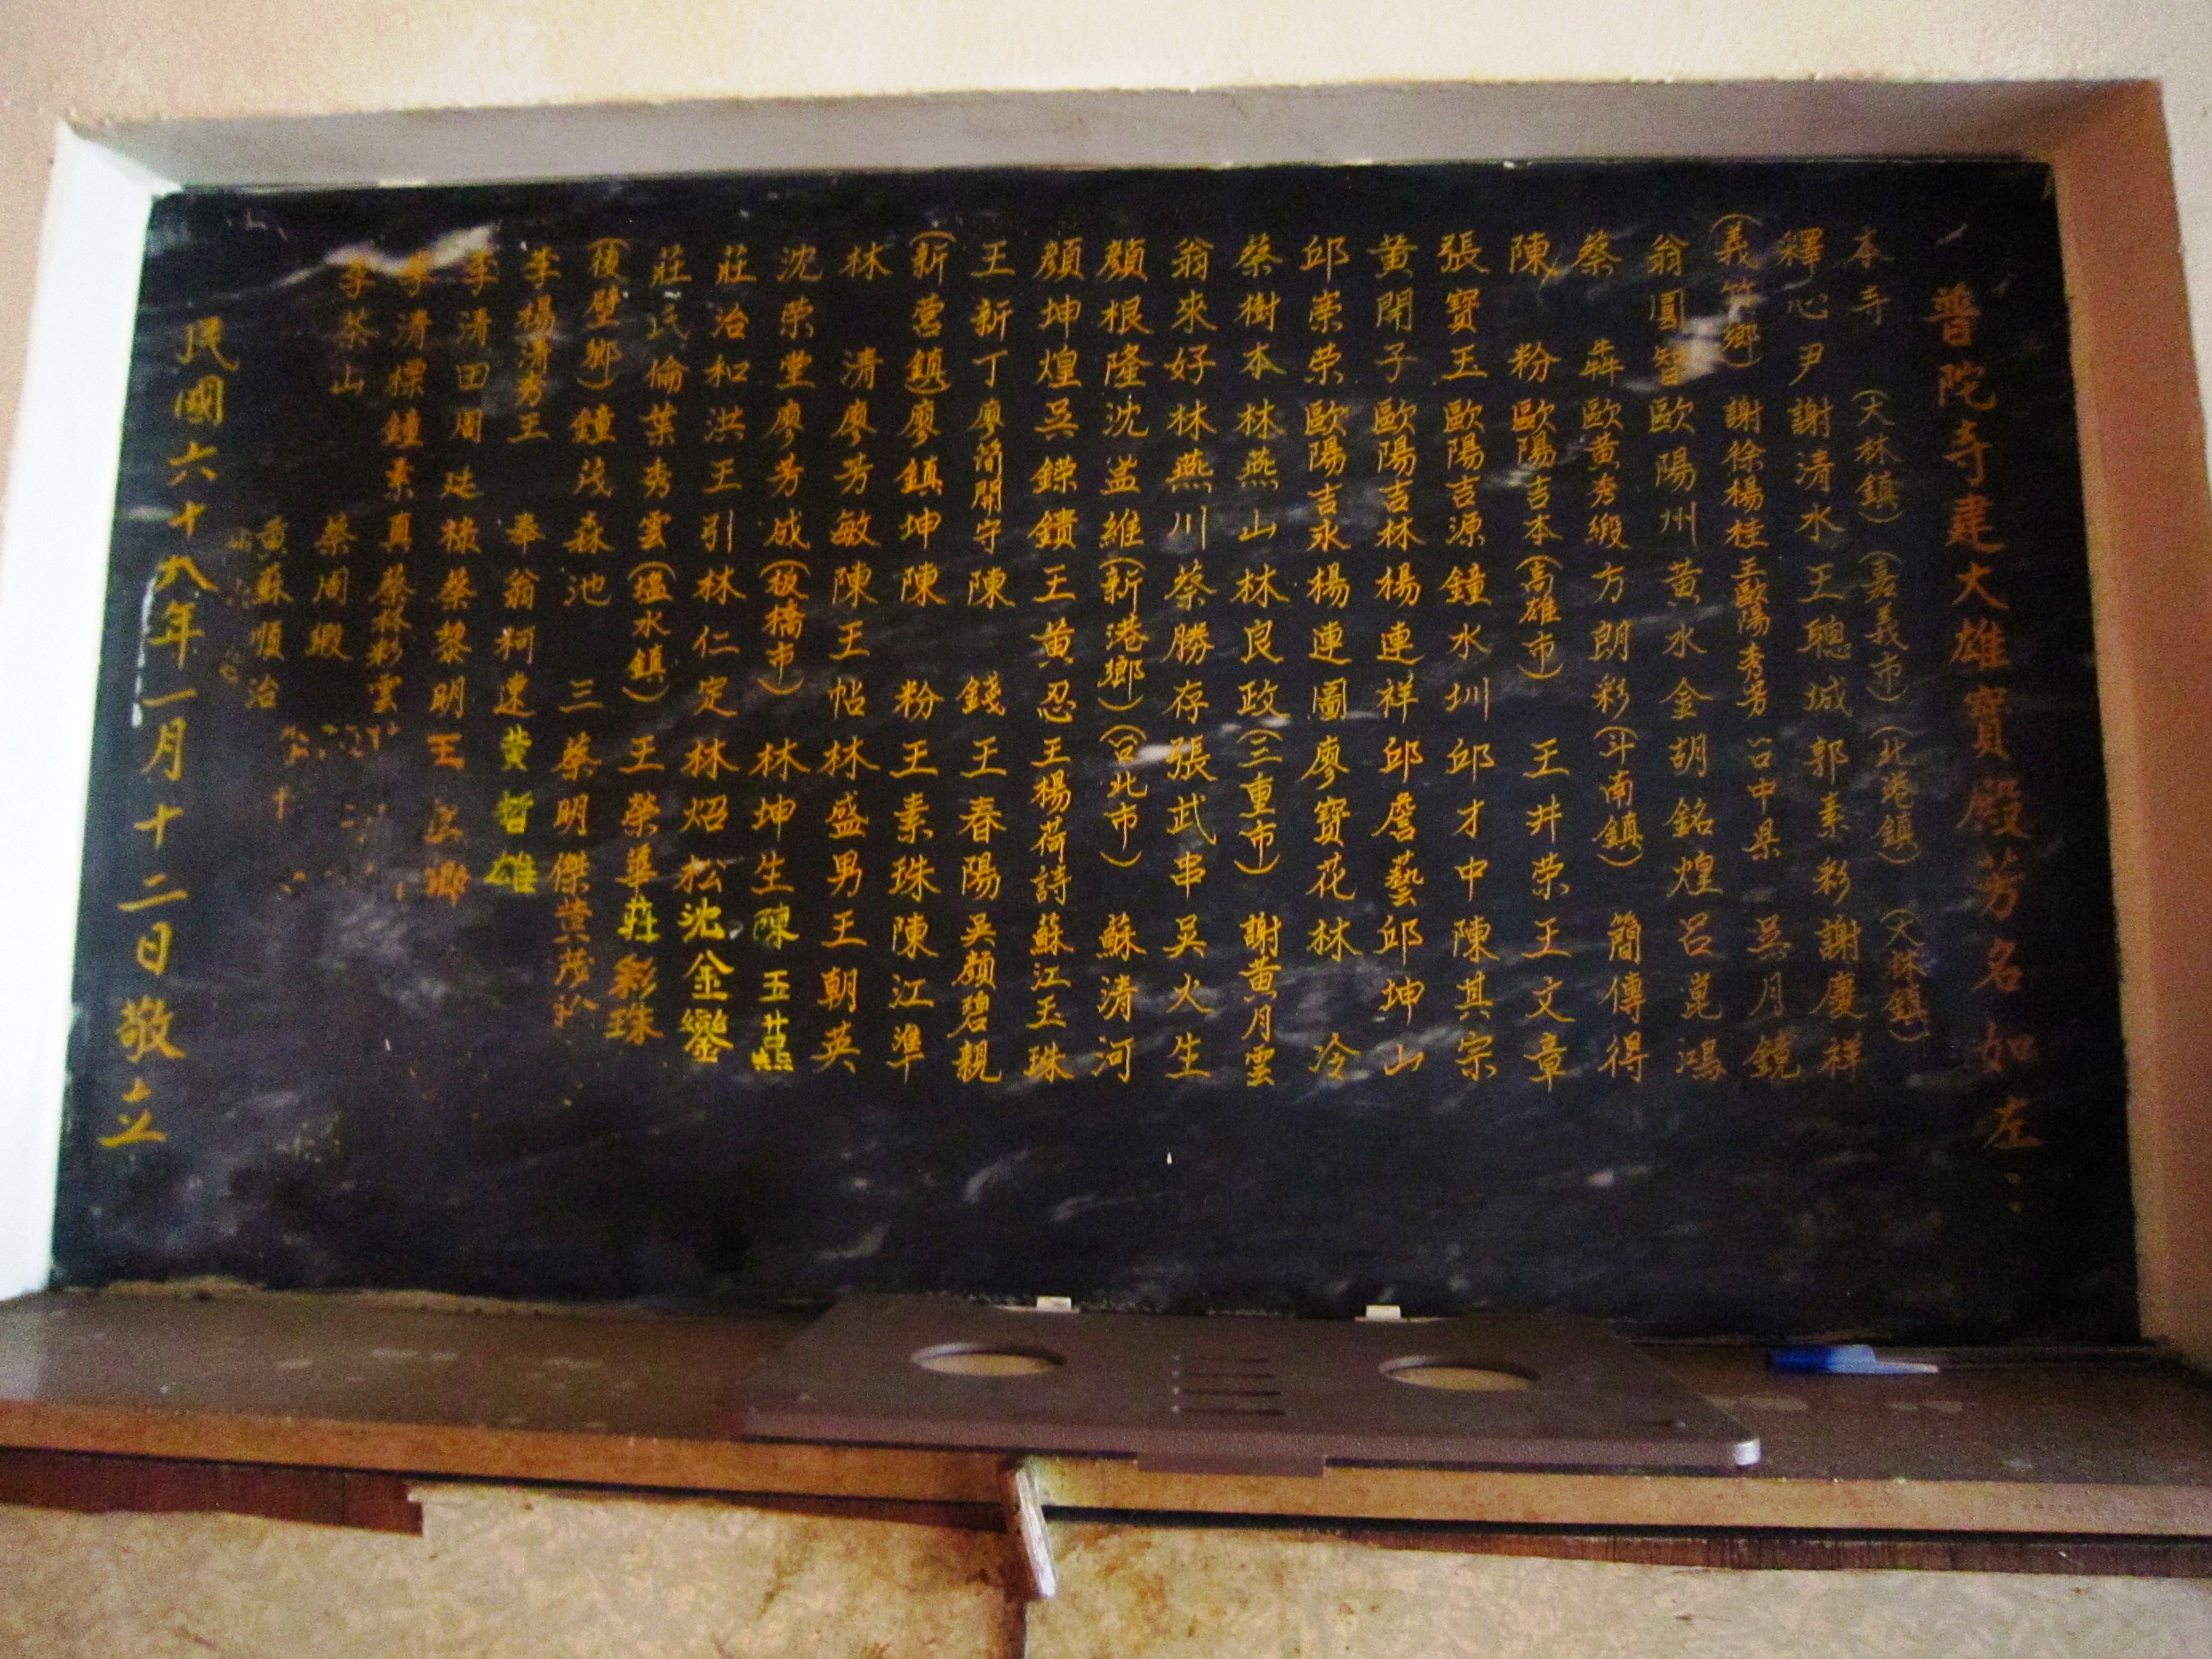 普陀寺建大雄寶殿芳名如左：
本寺 (大林鎮) (嘉義市) (北港鎮) (大林鎮)
釋心尹 謝清水 王聰城 郭素彩 謝慶祥
(義竹鄉) 謝徐楊桂 王歐陽秀芳 台中県 吳月鏡
翁圓智 歐陽州 黃水金 胡銘煌 呂崑鴻
蔡犇 歐黃秀緞 方朗彩 (斗南鎮) 簡傳得
陳粉 歐陽吉本 (高雄市) 王井榮 王文章
張寶玉 歐陽吉源 鐘水圳 邱才中 陳其宗
黃開子 歐陽吉林 楊連祥 邱詹藝 邱坤山
邱崇榮 歐陽吉永 楊連圖 廖寶花 林冷
蔡樹本 林燕山 林良政 (三重市) 謝黃月雲
翁來好 林燕川 蔡勝存 張武串 吳火生
顏根隆 沈盖維 (新港鄉) (台北市) 蘇清河
顏坤煌 吳鑅鐨 王黃忍 王楊荷詩 蘇江玉珠
王新丁 廖簡開守 陳錢 王春陽 吳顏碧親
(新營鎮) 廖鎮坤 陳粉 王素珠 陳江準
林清 廖芳敏 陳王帖 林盛男 王朝英
沈榮堂 廖芳成 (板橋市) 林坤生 陳玉燕
莊治和 洪王引 林仁定 林炤松 沈金鑾
莊氏倫 葉秀雲 (塩水鎮) 王榮華 莊彩珠
(後壁鄉) 鐘茂森 池三 蔡明傑 黃茂
李楊清秀 王奉 翁柯速 黃哲雄
李清田 周廷樣 蔡黎明 王 卿
李清標 鐘素真 蔡林彩雲
李蔡山 蔡周緞
黃蘇順治
民國六十八年一月十二日敬立